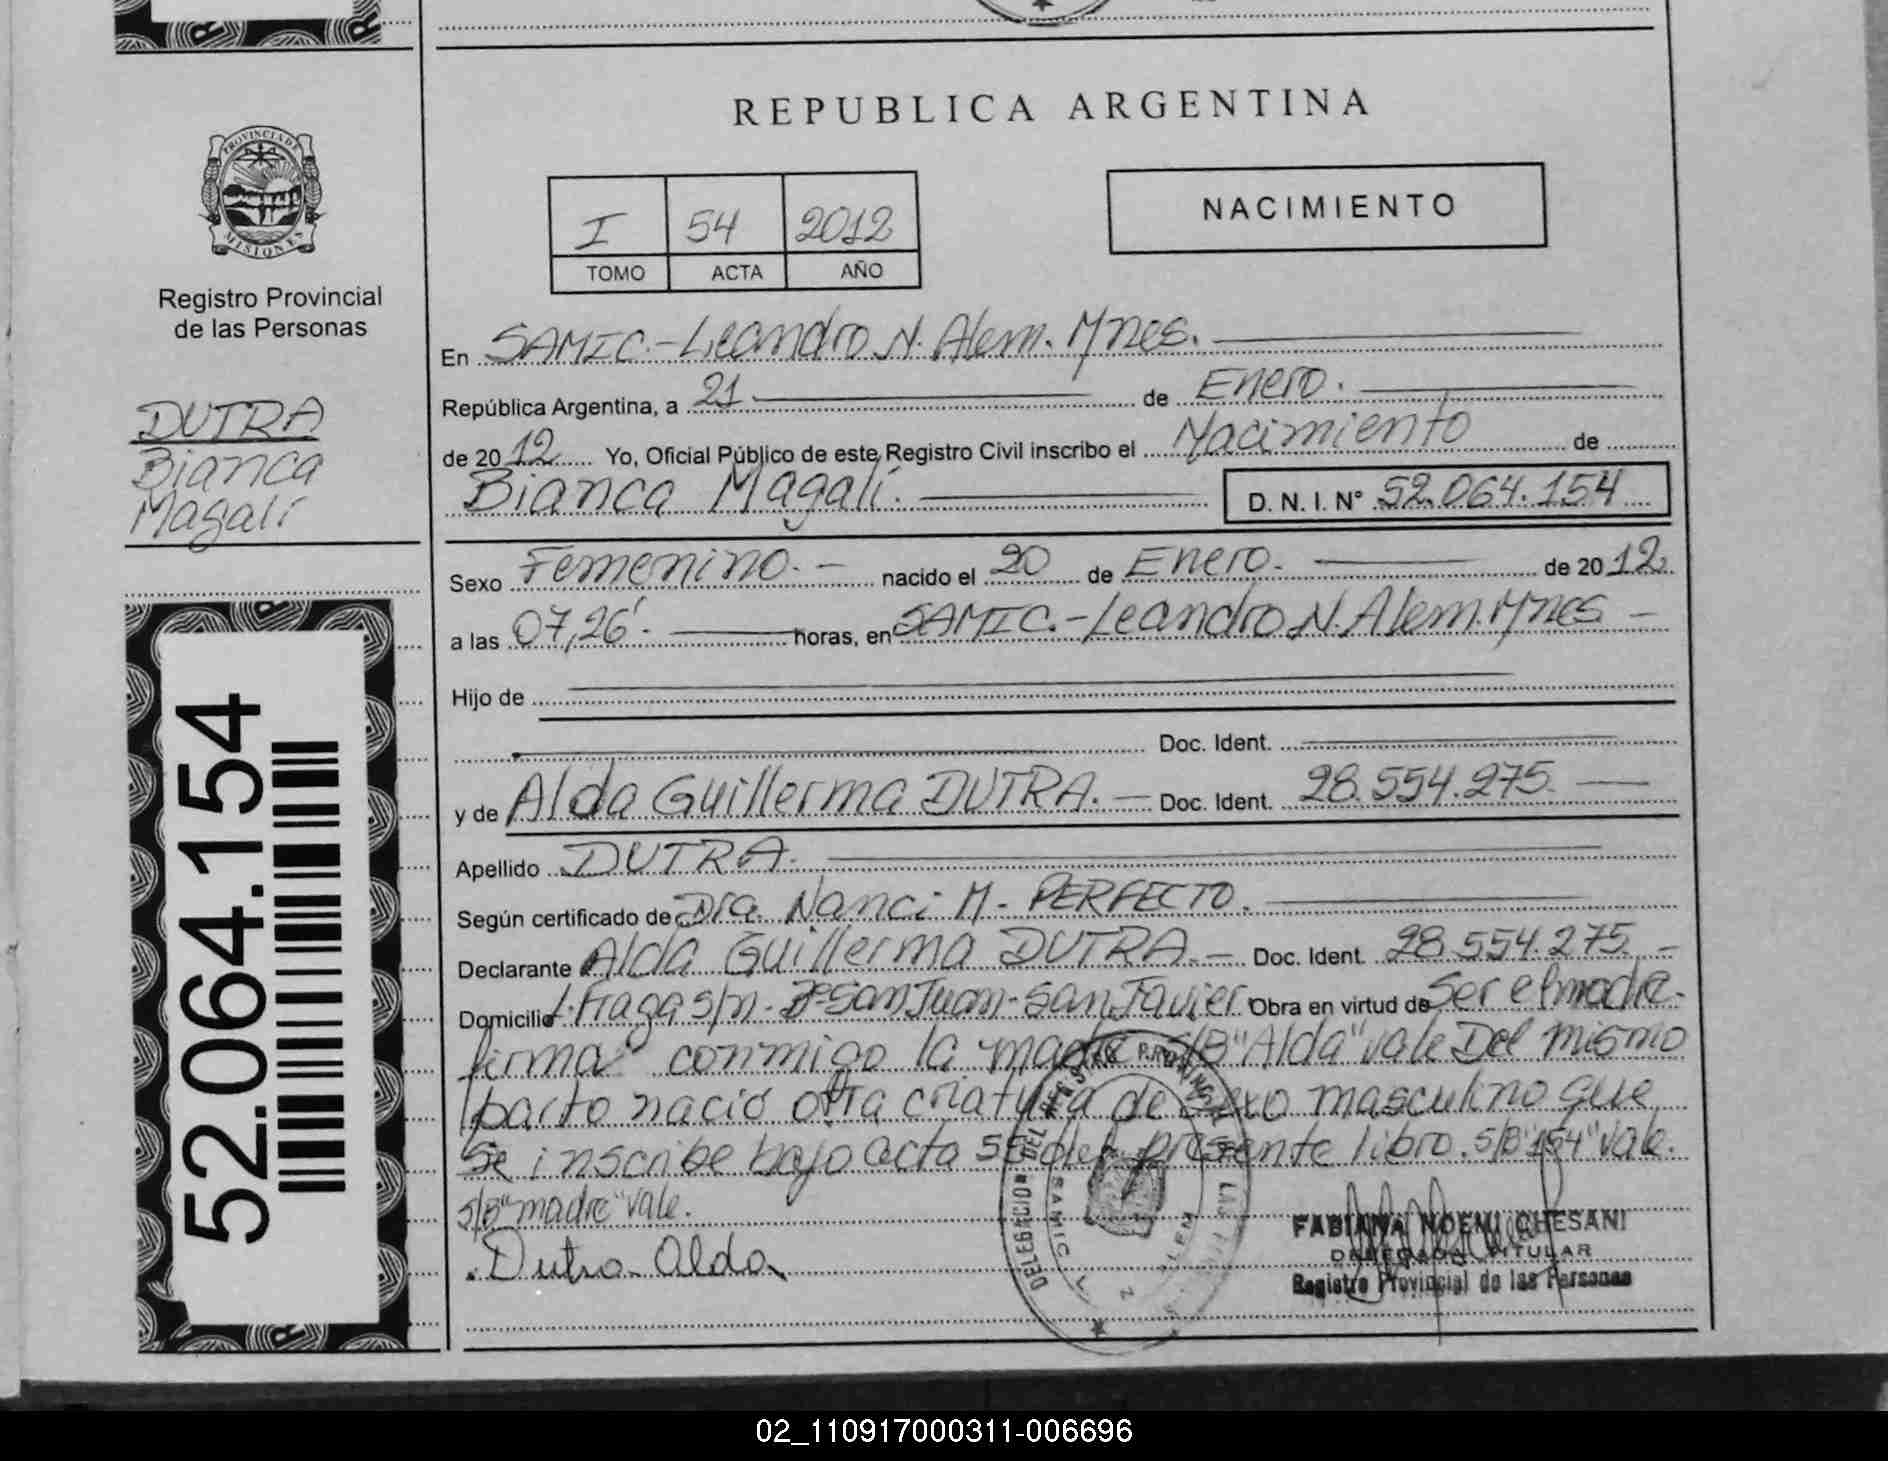 REPUBLICA ARGENTINA
PROVINCIA DE
MISIONES
Registro Provincial
de las Personas
DUTRA
Bianca
Magalí
52.064.154
I 54 2012
TOMO ACTA AÑO
NACIMIENTO
En SAMIC.-Leandro N. Alem. Mnes.
República Argentina, a 21 de Enero.
de 2012 Yo, Oficial Público de este Registro Civil inscribo el Nacimiento de
Bianca Magalí. D. N. I. N° 52.064.154
Sexo Femenino.- nacido el 20 de Enero. de 2012
a las 07,26'. horas, en SAMIC.-Leandro N. Alem. Mnes -
Hijo de
Doc. Ident.
y de Alda Guillerma DUTRA.- Doc. Ident. 28.554.275.
Apellido DUTRA.
Según certificado de Dra. Nanci M. PERFECTO.
Declarante Alda Guillerma DUTRA.- Doc. Ident. 28.554.275.-
Domicilio Fraga s/n. San Juan-San Javier. Obra en virtud de Ser el madre-
firma conmigo la madre S/B "Alda" vale Del mismo
parto nació otra criatura de sexo masculino que
Se inscribe bajo acta 55 del presente libro. S/B "154" vale.
S/B "madre" vale.
Dutra Alda
DELEGACION DEL REGISTRO PROVINCIAL DE LAS
SAMIC L. N. ALEM
FABIANA NOEMI CHESANI
DELEGADA TITULAR
Registro Provincial de las Personas
02_110917000311-006696